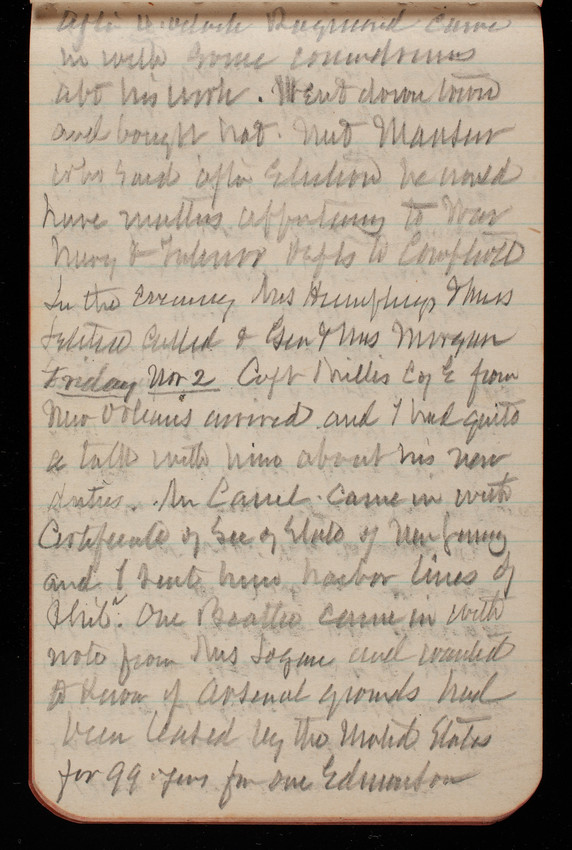 after 4 oclock Raymond came
in with some conundrums
abt his work. Went down town
and bought hat. Met Mansur
who said after Election he would
have matters appertaining to War
Navy & Interior Depts to Comptroll
In the Evening Mrs Humphreys & Miss
called & Gen & Mrs Morgan
Friday Nov 2 Capt Willis C of E from
New Orleans arrived and I had quite
a talk with him about his new
duties. Mr came in with
Certificate of Sec of State of New Jersey
and I sent him harbor lines of
Phila. One Beattie came in with
note from Mrs Logan and wanted
to know if Arsenal grounds had
been leased by the United States
for 99 years for one Edmonston